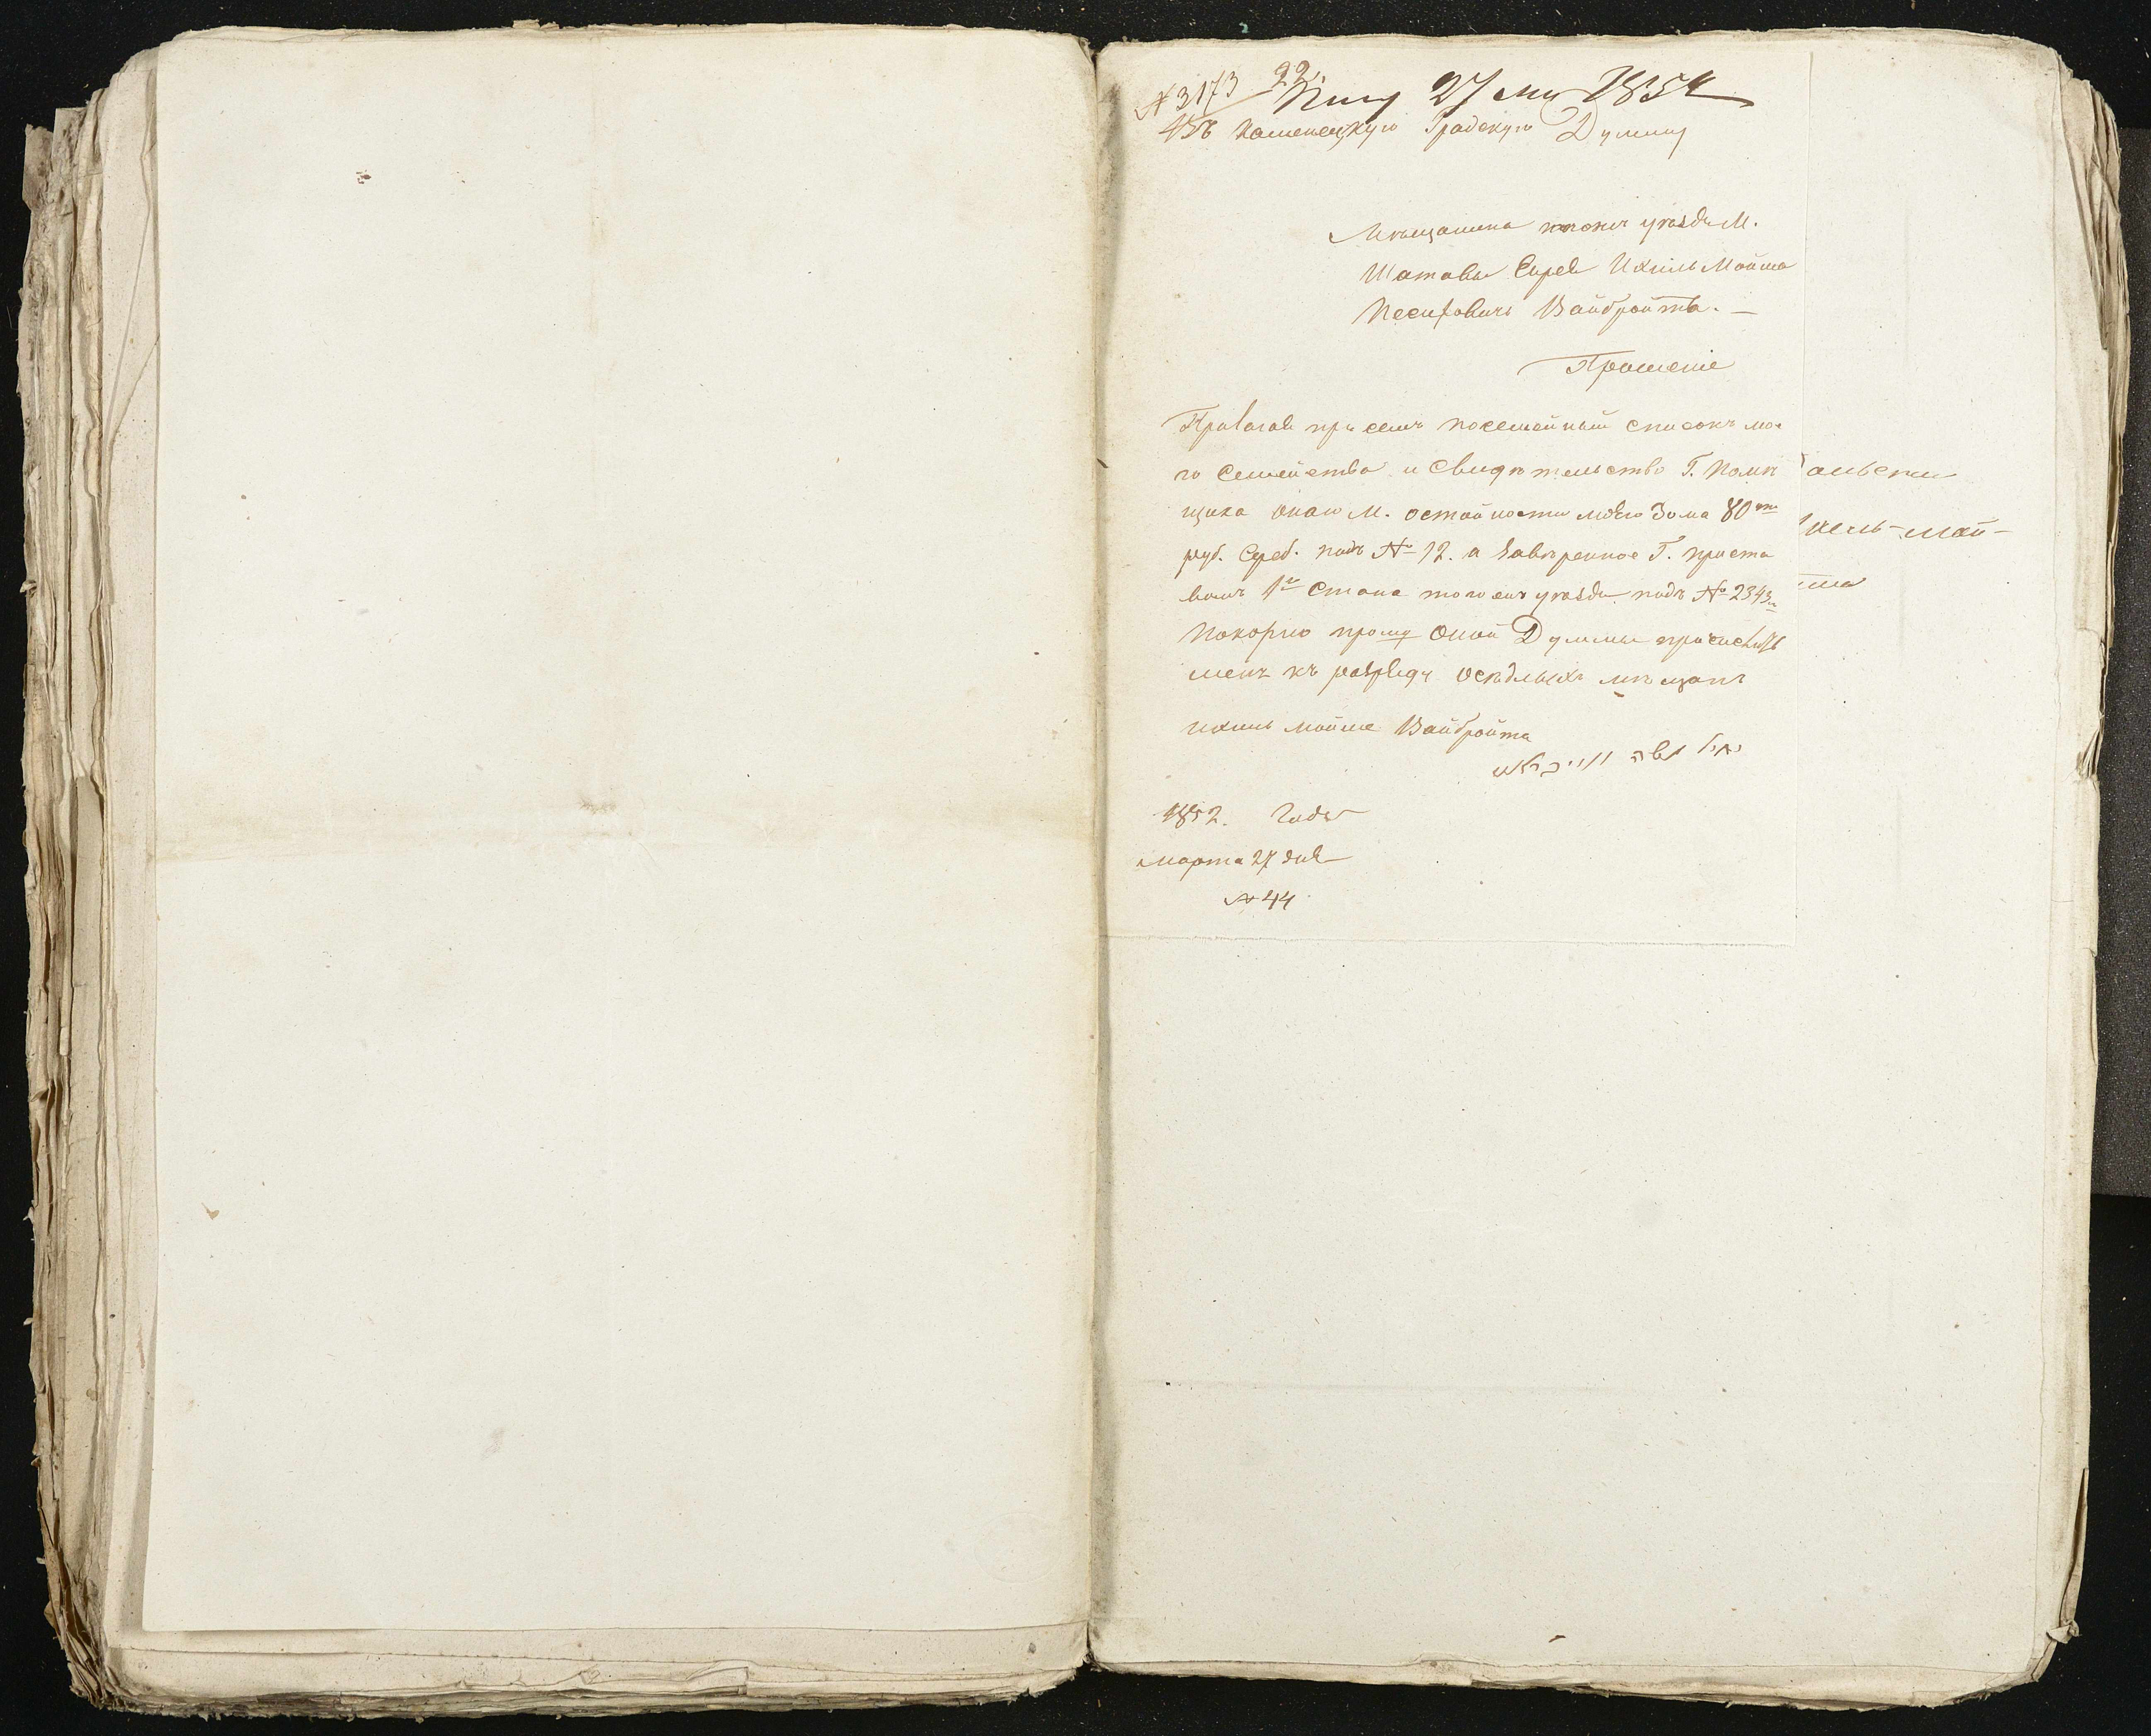 № 3173 22.
27 1852
Въ Каменецкую Градскую Думму
Мѣщанина тогожъ уѣзда М.
Шатавы Еврея Ихиль Мойша
Песиховичъ Вайбройта. —
Прошеніе
Прилагая при семъ посемейный списокъ мое
го семейства и свидѣтельство Г. Помѣ
щика оного М. о стойности моего дома 80 ти
руб. Сереб. подъ № 12. а завѣренное Г. приста
вомъ 1го Стана того ежъ уѣзда подъ № 2343м
Покорно прошу оной Думмы причислить
менѣ къ разряду осѣдлыхъ мѣщанъ
ихиль мойше Вайбройта
יחיל משה ווייברויט
1852. Года
марта 27 дня
№ 44
хель-мой-